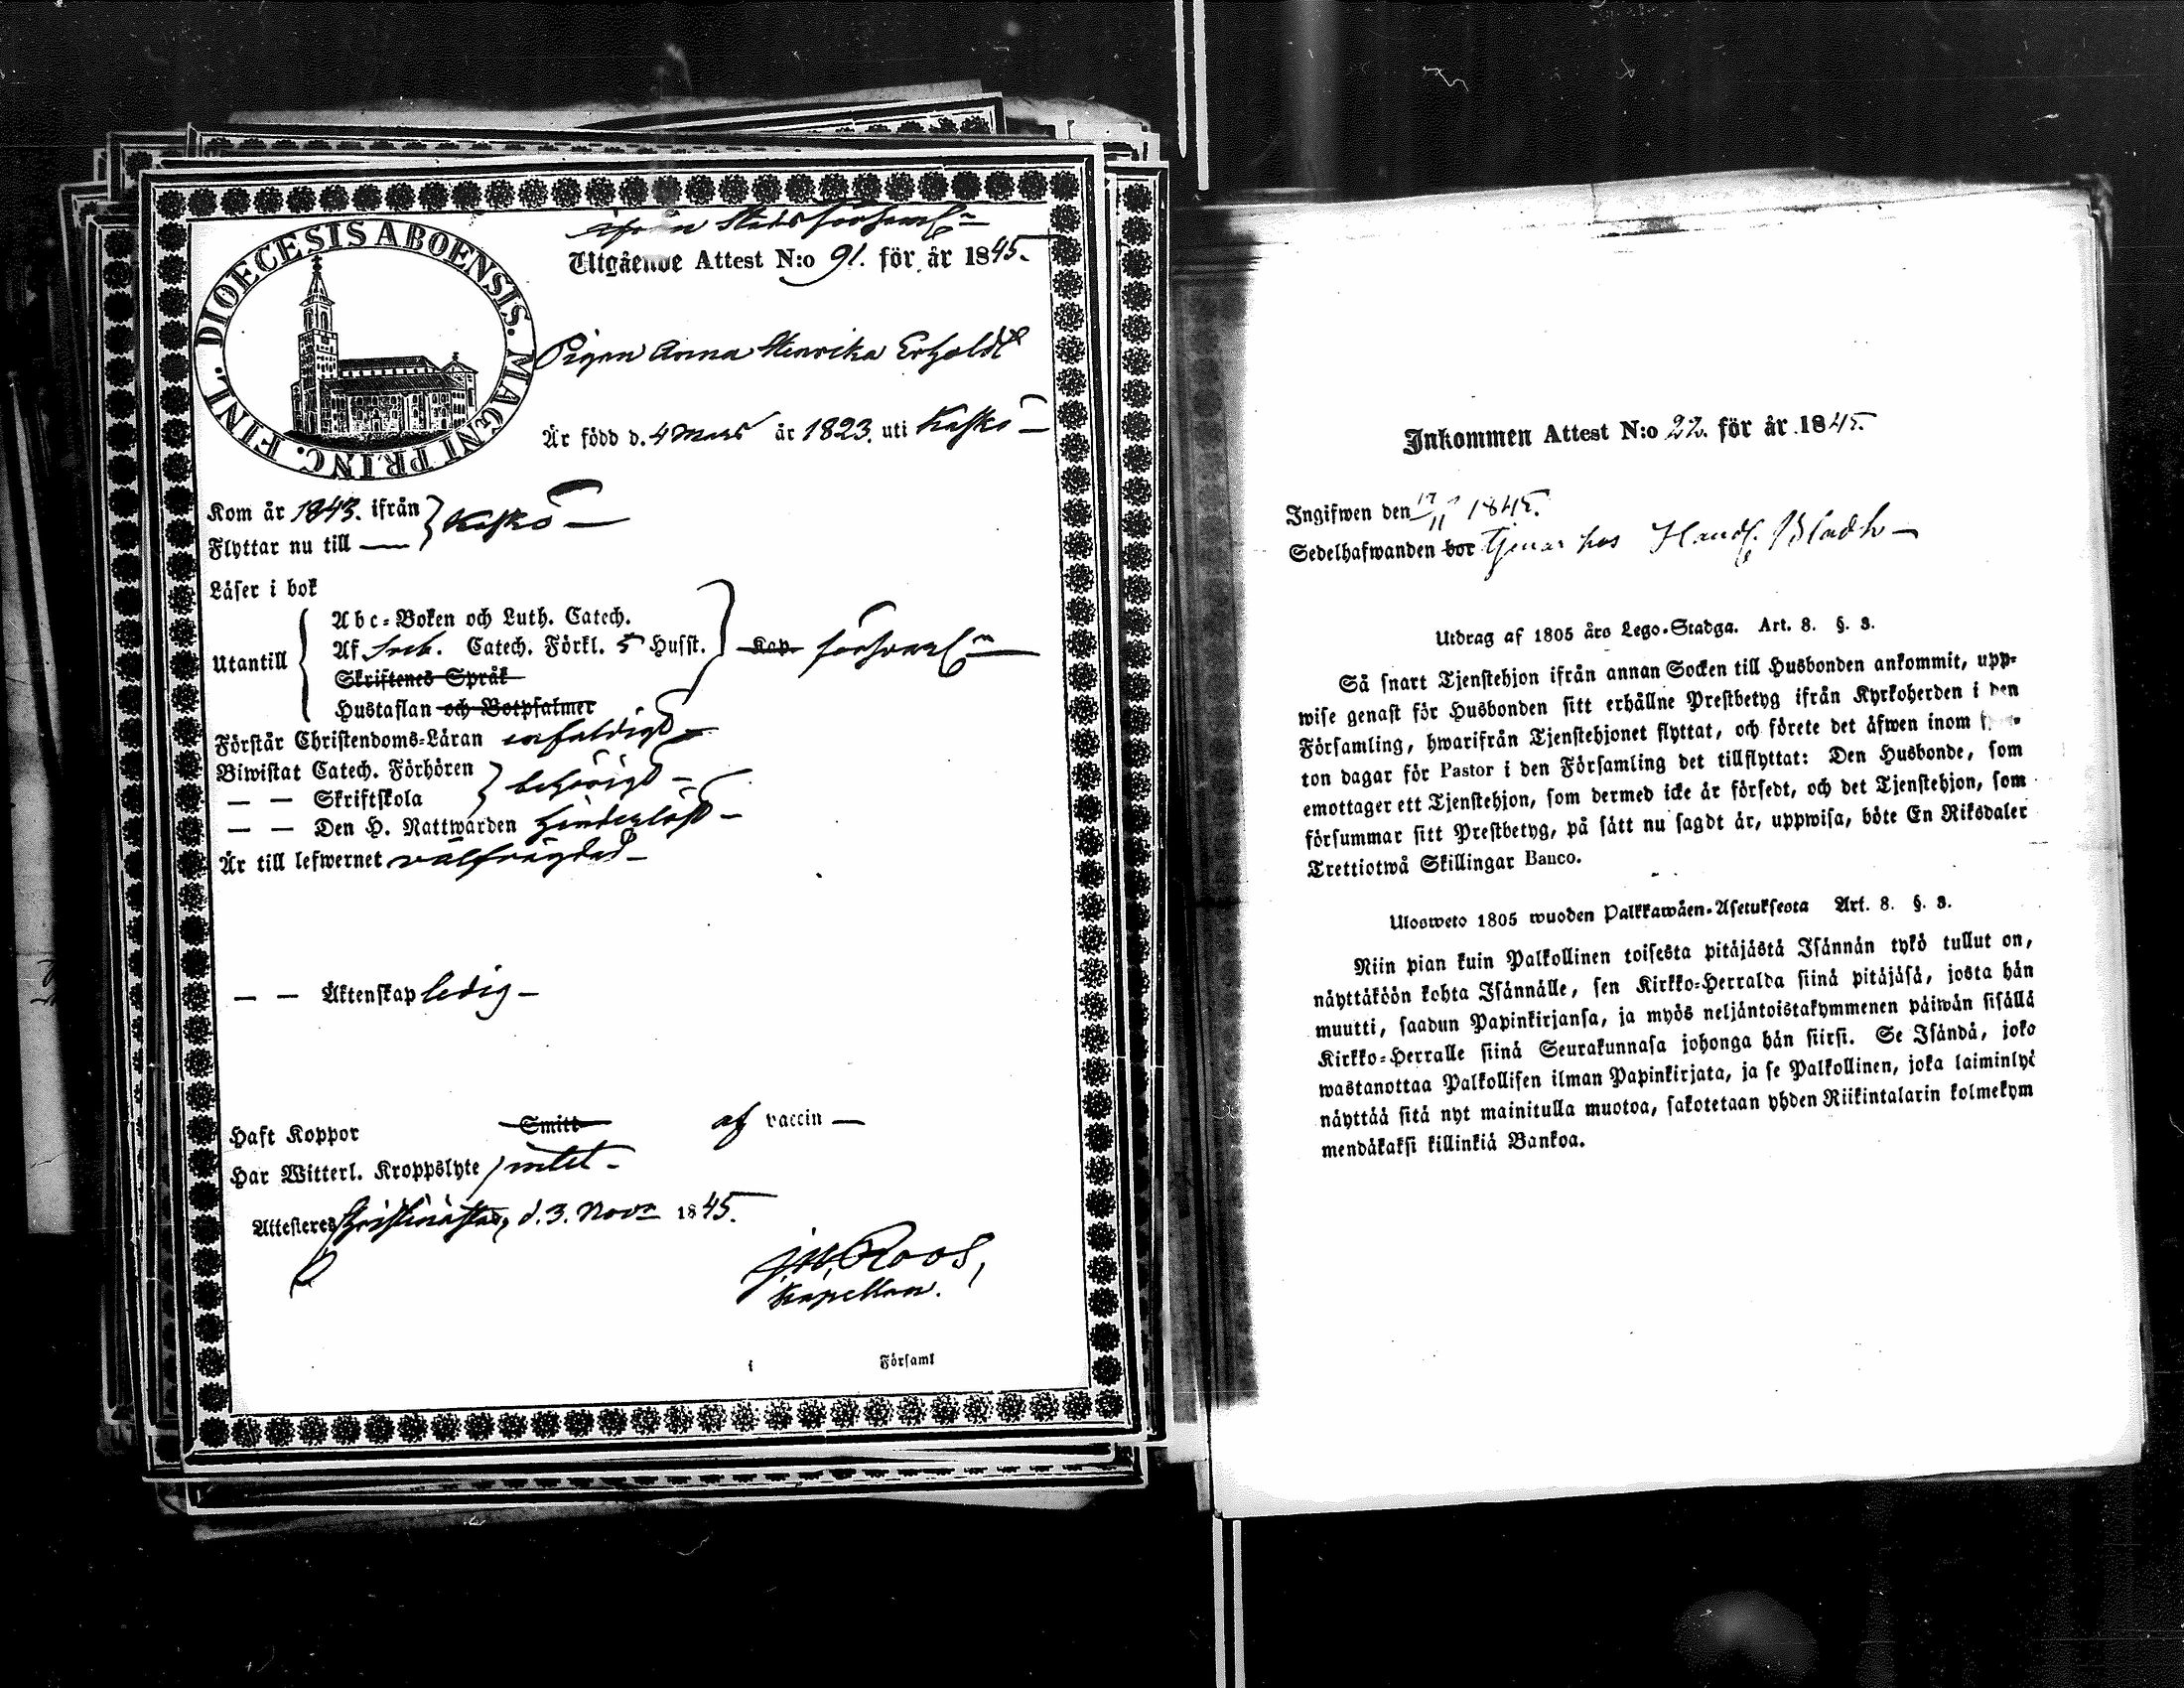 DIOECESIS ABOENSIS. MAGNI PRINC. FINL.
ifrån Stadsförsaml
Utgående Attest N:o 91. för år 1845.
Pigan Anna Henrika
Är född d. 4 Mars år 1823. uti Kaskö
Kom år 1843. ifrån } Kaskö
Flyttar nu till
Läser i bok
Utantill
Abc-Boken och Luth. Catech.
Af Sveb. Catech. Förkl. 5 Husst. Kap.
Skriftenes Språk
Hustaflan och Botpsalmer
Förstår Christendoms-Läran enfaldigt
Biwistat Catech. Förhören } behörigt
— — Skriftskola
— — Den H. Nattwarden hinderlöst
Är till lefwernet välfrägdad
— — Äktenskap ledig
Haft Koppor Smitt af vaccin
Har Witterl. Kroppslyte intet
Attesteres Christinæstad, d. 3. Nov. 1845.
J. W. Roos,
Kapellan.
i Församl
Inkommen Attest N:o 22. för år 1845.
Ingifwen den 17/11 1845.
Sedelhafwanden bor tjenar hos Handl. Bladh
Utdrag af 1805 års Lego-Stadga. Art. 8. §. 3.
Så snart Tjenstehjon ifrån annan Socken till Husbonden ankommit, upp-
wise genast för Husbonden sitt erhållne Prestbetyg ifrån Kyrkoherden i den
Församling, hwarifrån Tjenstehjonet flyttat, och förete det äfwen inom
ton dagar för Pastor i den Församling det tillflyttat: Den Husbonde, som
emottager ett Tjenstehjon, som dermed icke är försedt, och det Tjenstehjon, som
försummar sitt Prestbetyg, på sätt nu sagdt är, uppwisa, böte En Riksdaler
Trettiotwå Skillingar Banco.
Ulosweto 1805 wuoden Palkkawäen-Asetuksesta Art. 8. §. 3.
Niin pian kuin Palkollinen toisesta pitäjästä Isännän tykö tullut on,
näyttäköön kohta Isännälle, sen Kirkko-Herralda siinä pitäjäsä, josta hän
muutti, saadun Papinkirjansa, ja myös neljäntoistakymmenen päiwän sisällä
Kirkko-Herralle siinä Seurakunnasa johonga hän siirsi. Se Isändä, joko
wastanottaa Palkollisen ilman Papinkirjata, ja se Palkollinen, joka laiminlyö
näyttää sitä nyt mainitulla muotoa, sakotetaan yhden Riikintalarin kolmekym
mendäkaksi killinkiä Bankoa.